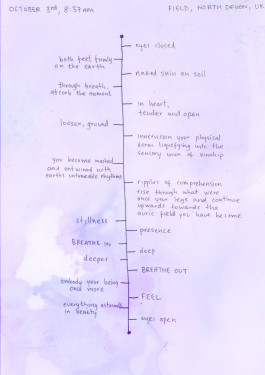 OCTOBER 3rd, 8:37AM
FIELD, NORTH DEVON, UK
eyes closed
both feet firmly
on the earth
naked skin on soil
through breath,
absorb the moment
in heart,
tender and open
loosen, ground
immersion your physical
form liquefying into the
sensory womb of kinship
you become melted
and entwined with
earths untameable rhythms
ripples of comprehension
rise through what were
once your legs and continue
upwards towards the
auric field you have become
stillness
presence
BREATHE IN
deep
deeper
BREATHE OUT
embody your being
once more
FEEL
everything
in beauty
eyes open